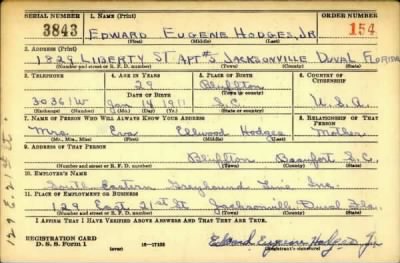 SERIAL NUMBER 1. NAME (Print) ORDER NUMBER
3843 EDWARD EUGENE HODGES, JR 154
(First) (Middle) (Last)
2. ADDRESS (Print)
1829 LIBERTY ST APT #5 JACKSONVILLE DUVAL FLORIDA
(Number and street or R. F. D. number) (Town) (County) (State)
3. TELEPHONE 4. AGE IN YEARS 5. PLACE OF BIRTH 6. COUNTRY OF CITIZENSHIP
29 Bluffton
DATE OF BIRTH (Town or county)
30361W Jan 14 1911 S.C. U.S.A.
(Exchange) (Number) (Mo.) (Day) (Yr.) (State or country)
7. NAME OF PERSON WHO WILL ALWAYS KNOW YOUR ADDRESS 8. RELATIONSHIP OF THAT PERSON
Mrs. Eva Ellwood Hodges Mother
(Mr., Mrs., Miss) (First) (Middle) (Last)
9. ADDRESS OF THAT PERSON
Bluffton Beaufort S.C.
(Number and street or R. F. D. number) (Town) (County) (State)
10. EMPLOYER'S NAME
South Eastern Greyhound Line Inc.
11. PLACE OF EMPLOYMENT OR BUSINESS
129 East 21st St. Jacksonville, Duval Fla.
(Number and street or R. F. D. number) (Town) (County) (State)
I AFFIRM THAT I HAVE VERIFIED ABOVE ANSWERS AND THAT THEY ARE TRUE.
REGISTRATION CARD
D. S. S. Form 1 (over) 16-17105 Edward Eugene Hodges Jr.
(Registrant's signature)
129 E 21 St.